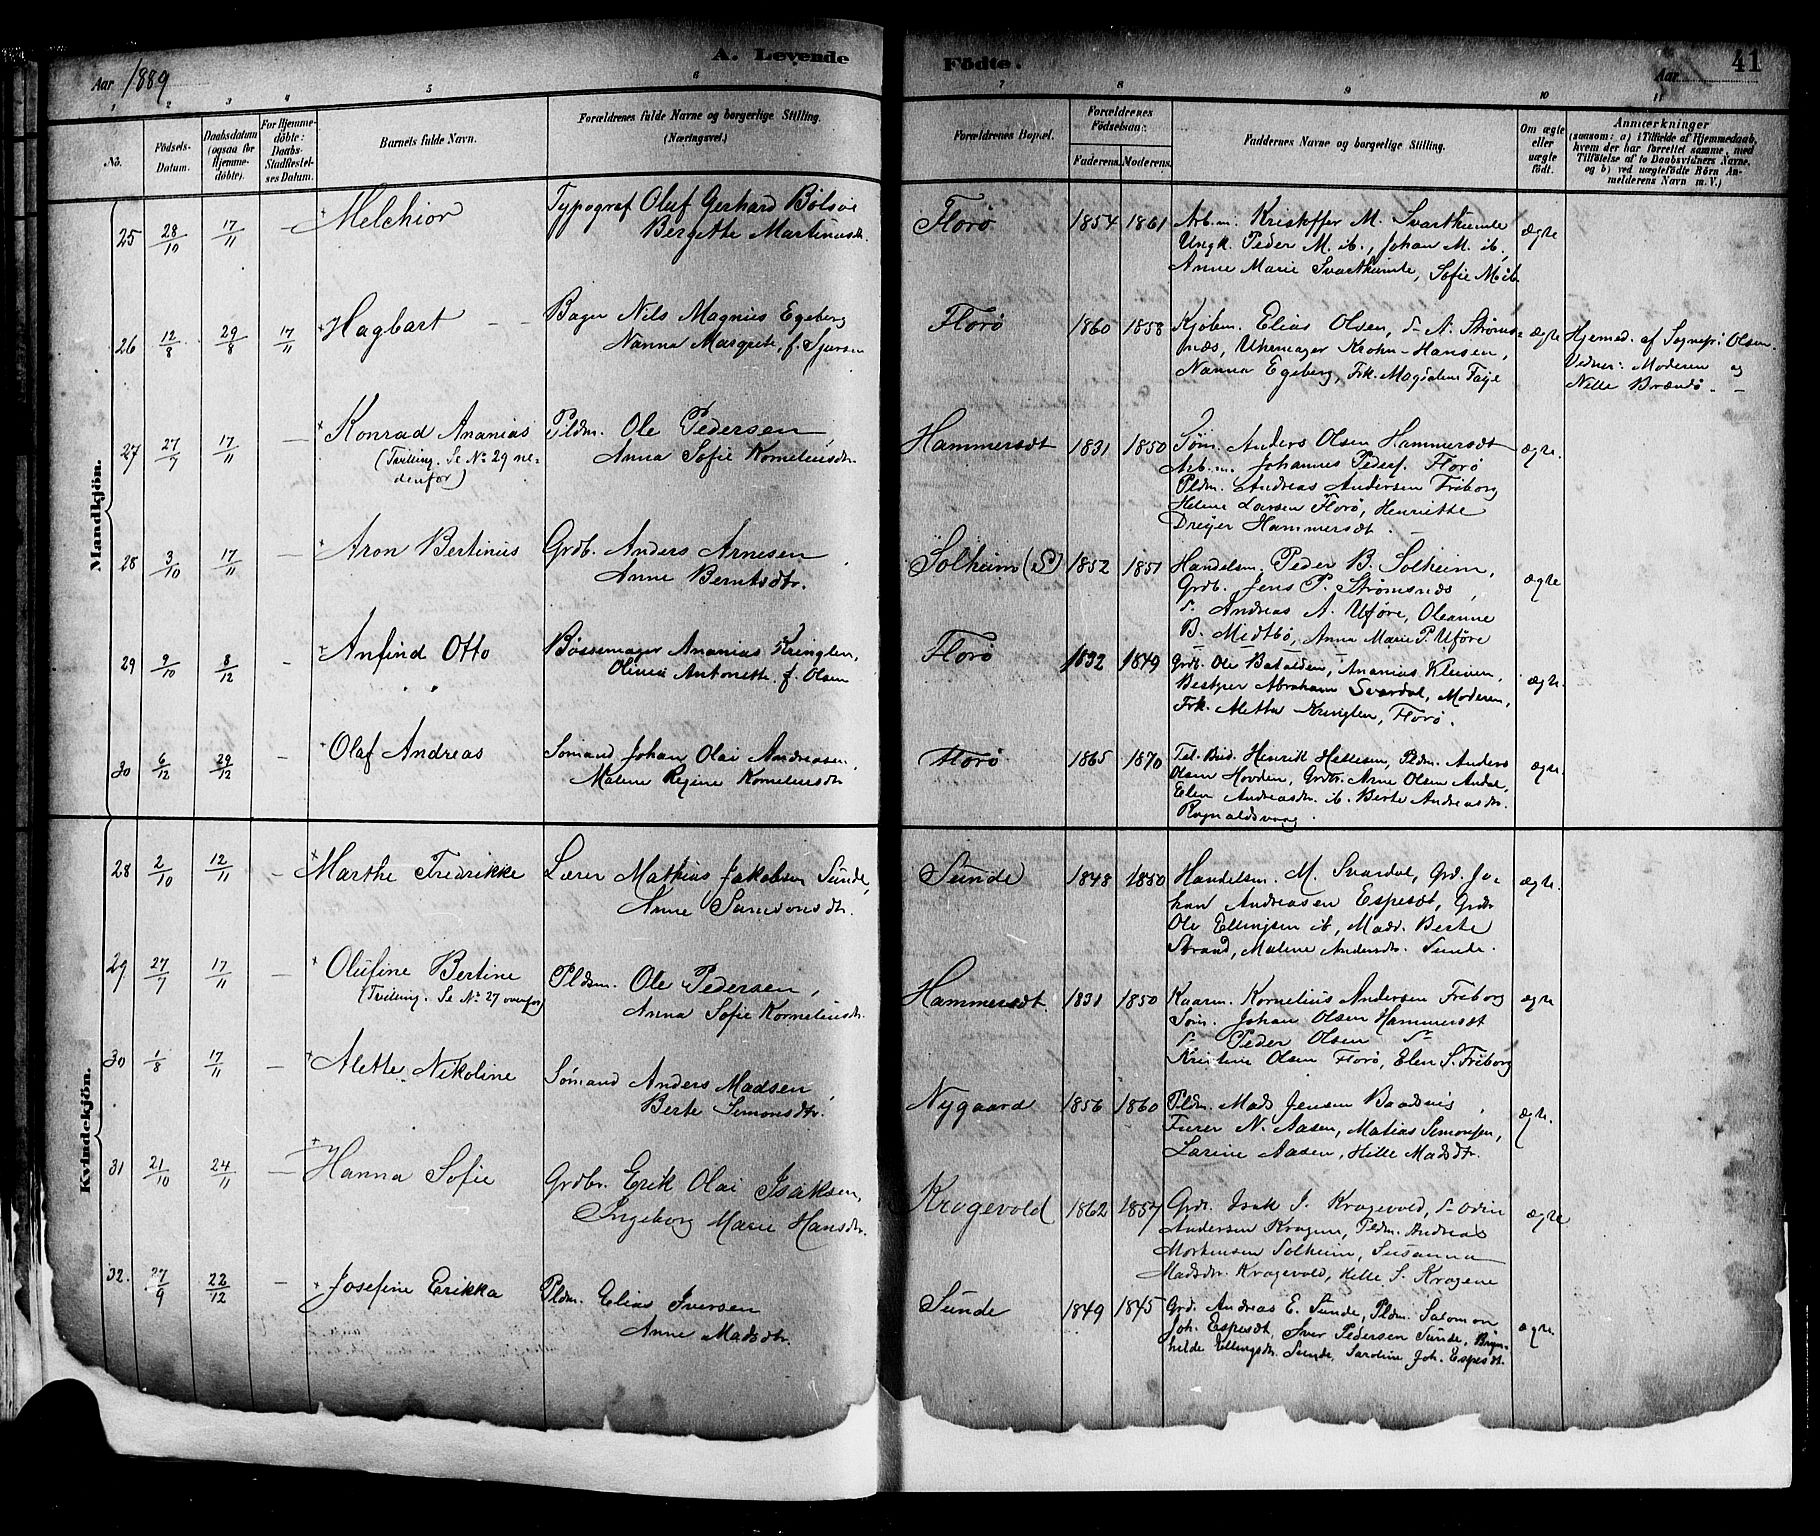 Aar 1889
A. Levende
Födte.
Aar
41
1 2 3 4 5 6 7 8 9 10 11
No.
Födsels-Datum.
Daabsdatum (ogsaa för Hjemme-döbte).
For Hjemme-döbte: Daabs-Stadfæstel-ses Datum.
Barnets fulde Navn.
Forældrenes fulde Navne og borgerlige Stilling. (Næringsvei.)
Forældrenes Bopæl.
Forældrenes Födselsaar:
Faderens. Moderens.
Faddernes Navne og borgerlige Stilling.
Om ægte eller uægte födt.
Anmærkninger
(saasom: a) i Tilfælde af Hjemmedaab, hvem der har forrettet samme, med Tilföielse af to Daabsvidners Navne, og b) ved uægtefödte Börn An-melderens Navn m. V.)
Mandkjön.
25 28/10 17/11 — Melchior
Typograf Oluf Gerhard Bölsvé
Bergitte Martinusdr.
Florö 1854 1861
Arb.m. Kristoffer M. Svarthumle
Ungk. Peder M. ib., Johan M. ib,
Anne Marie Svarthumle, Sofie M. ib.
ægte
26 12/8 29/8 17/11 Hagbart
Bager Nils Magnus Egeberg
Nanna Margrete, f. Sjursen
Florö 1860 1858
Kjöbm. Elias Olsen, do A. Ströms-
næs, Uhrmager Krohn-Hansen,
Nanna Egeberg, Frk. Magdalene Faye
ægte
Hjemed. af Sognepr: Olsen.
Vidner: Moderen og
Nille Brændö. —
27 27/7 17/11 — Konrad Ananias
(Tvilling. Se No 29 ne-
denfor)
Pldm. Ole Pedersen,
Anna Sofie Korneliusdr.
Hammersdt 1831 1850
Söm. Anders Olsen Hammersdt
Arb.m. Johannes Peders. Florö
Pldm. Andreas Andersen Friborg
Helene Larsen Florö, Henriette
Dreyer Hammersdt.
ægte.
28 3/10 17/11 — Aron Bertinus
Grdb. Anders Arnesen,
Anne Berntsdtr.
Solheim (S) 1852 1851
Handelsm. Peder B. Solheim,
Grdb. Jens P. Strömsnæs,
do. Andreas A. Uföre, Oleanne
B. Midtbö, Anna Marie P. Uföre
ægte
29 9/10 8/12 — Anfind Otto
Bössemager Ananias Kringlen,
Olina Antonette f. Olsen
Florö 1832 1849
Grdb. Ole Batalden, Ananias Kleiven,
Bestyrer Abraham Svardal, Moderen,
Frk. Aletta Kringlen, Florö.
ægte.
30 6/12 29/12 — Olaf Andreas
Sömand Johan Olai Andreasen,
Malene Regine Korneliusdtr
Florö 1865 1870
Tel. Bud Henrik Hellesen, Pldm. Anders
Olsen Hovden, Grdbr. Arne Olsen Andal,
Elen Andreasdr. ib. Berte Andreasdr.
Rognaldsvaag.
ægte.
Kvindekjön.
28 2/10 12/11 — Marthe Fredrikke
Lærer Mathias Jakobsen Sunde,
Anne Samsonsdtr.
Sunde 1848 1850
Handelsm. M. Svardal, Grd. Jo-
han Andreasen Espesdt, Grdbr
Ole Ellingsen ib, Madr. Berte
Strand, Malene Andersdr. Sunde.
ægte.
29 27/7 17/11 — Olufine Bertine
(Tvilling. Se No 27 ovenfor)
Pldsm. Ole Pedersen,
Anna Sofie Korneliusdr.
Hammersdt. 1831 1850
Kaarm. Kornelius Andersen Friborg
Söm. Johan Olsen Hammersdt
do. Peder Olsen do
Kristine Olsen Florö, Elen S. Friborg
ægte
30 1/8 17/11 — Alette Nikoline
Sömand Anders Madsen,
Berte Simonsdtr.
Nygaard 1856 1860
Pldm. Mads Jensen Baadsvig,
Furer N. Aasen, Matias Simonsen,
Larine Aasen, Hille Madsdtr.
ægte.
31 21/10 24/11 — Hanna Sofie
Grdbr. Erik Olai Isaksen,
Ingeborg Marie Hansdr.
Krogevold 1862 1857
Grdr. Isak J. Krogevold, do Odin
Andersen Krogene, Pldm. Andreas
Mortensen Solheim, Susanna
Madsdtr. Krogevold, Hille S. Krogene
ægte
32. 27/9 22/12 — Josefine Erikka
Pldm. Elias Iversen
Anne Madsdtr.
Sunde 1849 1845
Grd. Andreas E. Sunde, Pldm. Salomon
Joh. Espesdt, Iver Pedersen Sunde, Bryn-
hilde Ellingsdtr. Sunde, Karoline Joh. Espesdt.
ægte.